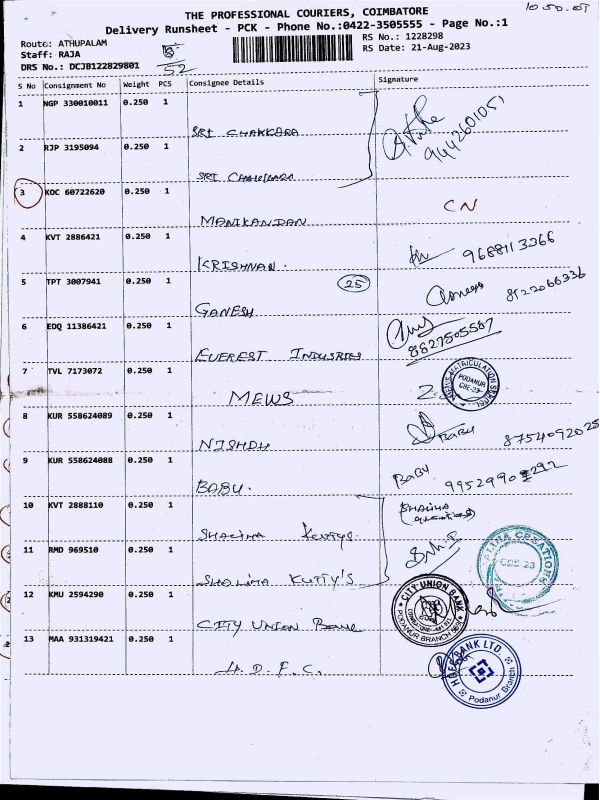 THE PROFESSIONAL COURIERS, COIMBATORE
Delivery Runsheet - PCK - Phone No.:0422-3505555 - Page No.:1
Route: ATHUPALAM
RS No.: 1228298
Staff: RAJA
RS Date: 21-Aug-2023
DRS No.: DCJB122829801
52
S No Consignment No Weight PCS Consignee Details Signature
1 NGP 330010011 0.250 1
SRI CHAKKARA
9442601051
2 RJP 3195094 0.250 1
SRI
3 KOC 60722620 0.250 1
MANIKANDAN CN
4 KVT 2886421 0.250 1
KRISHNAN. 9688113366
5 TPT 3007941 0.250 1 25
GANESH Ganesh 8122066336
6 EDQ 11386421 0.250 1
EVEREST INDUSRIES 8827505567
7 TVL 7173072 0.250 1
MEWS
MATRICULATION SCHOOL PODANUR CBE-23
8 KUR 558624089 0.250 1
NISHDH BABU 8754092025
9 KUR 558624088 0.250 1
BABU. BABU 9952990292
10 KVT 2888110 0.250 1
SHALIMA KUTTYS SHALIMA
11 RMD 969510 0.250 1
SHALIMA KUTTY'S
CREATIONS CBE-23
12 KMU 2594290 0.250 1
CITY UNION BANK
CITY UNION BANK PODANUR BRANCH
13 MAA 931319421 0.250 1
H.D.F.C.
HDFC BANK LTD. Podanur Branch